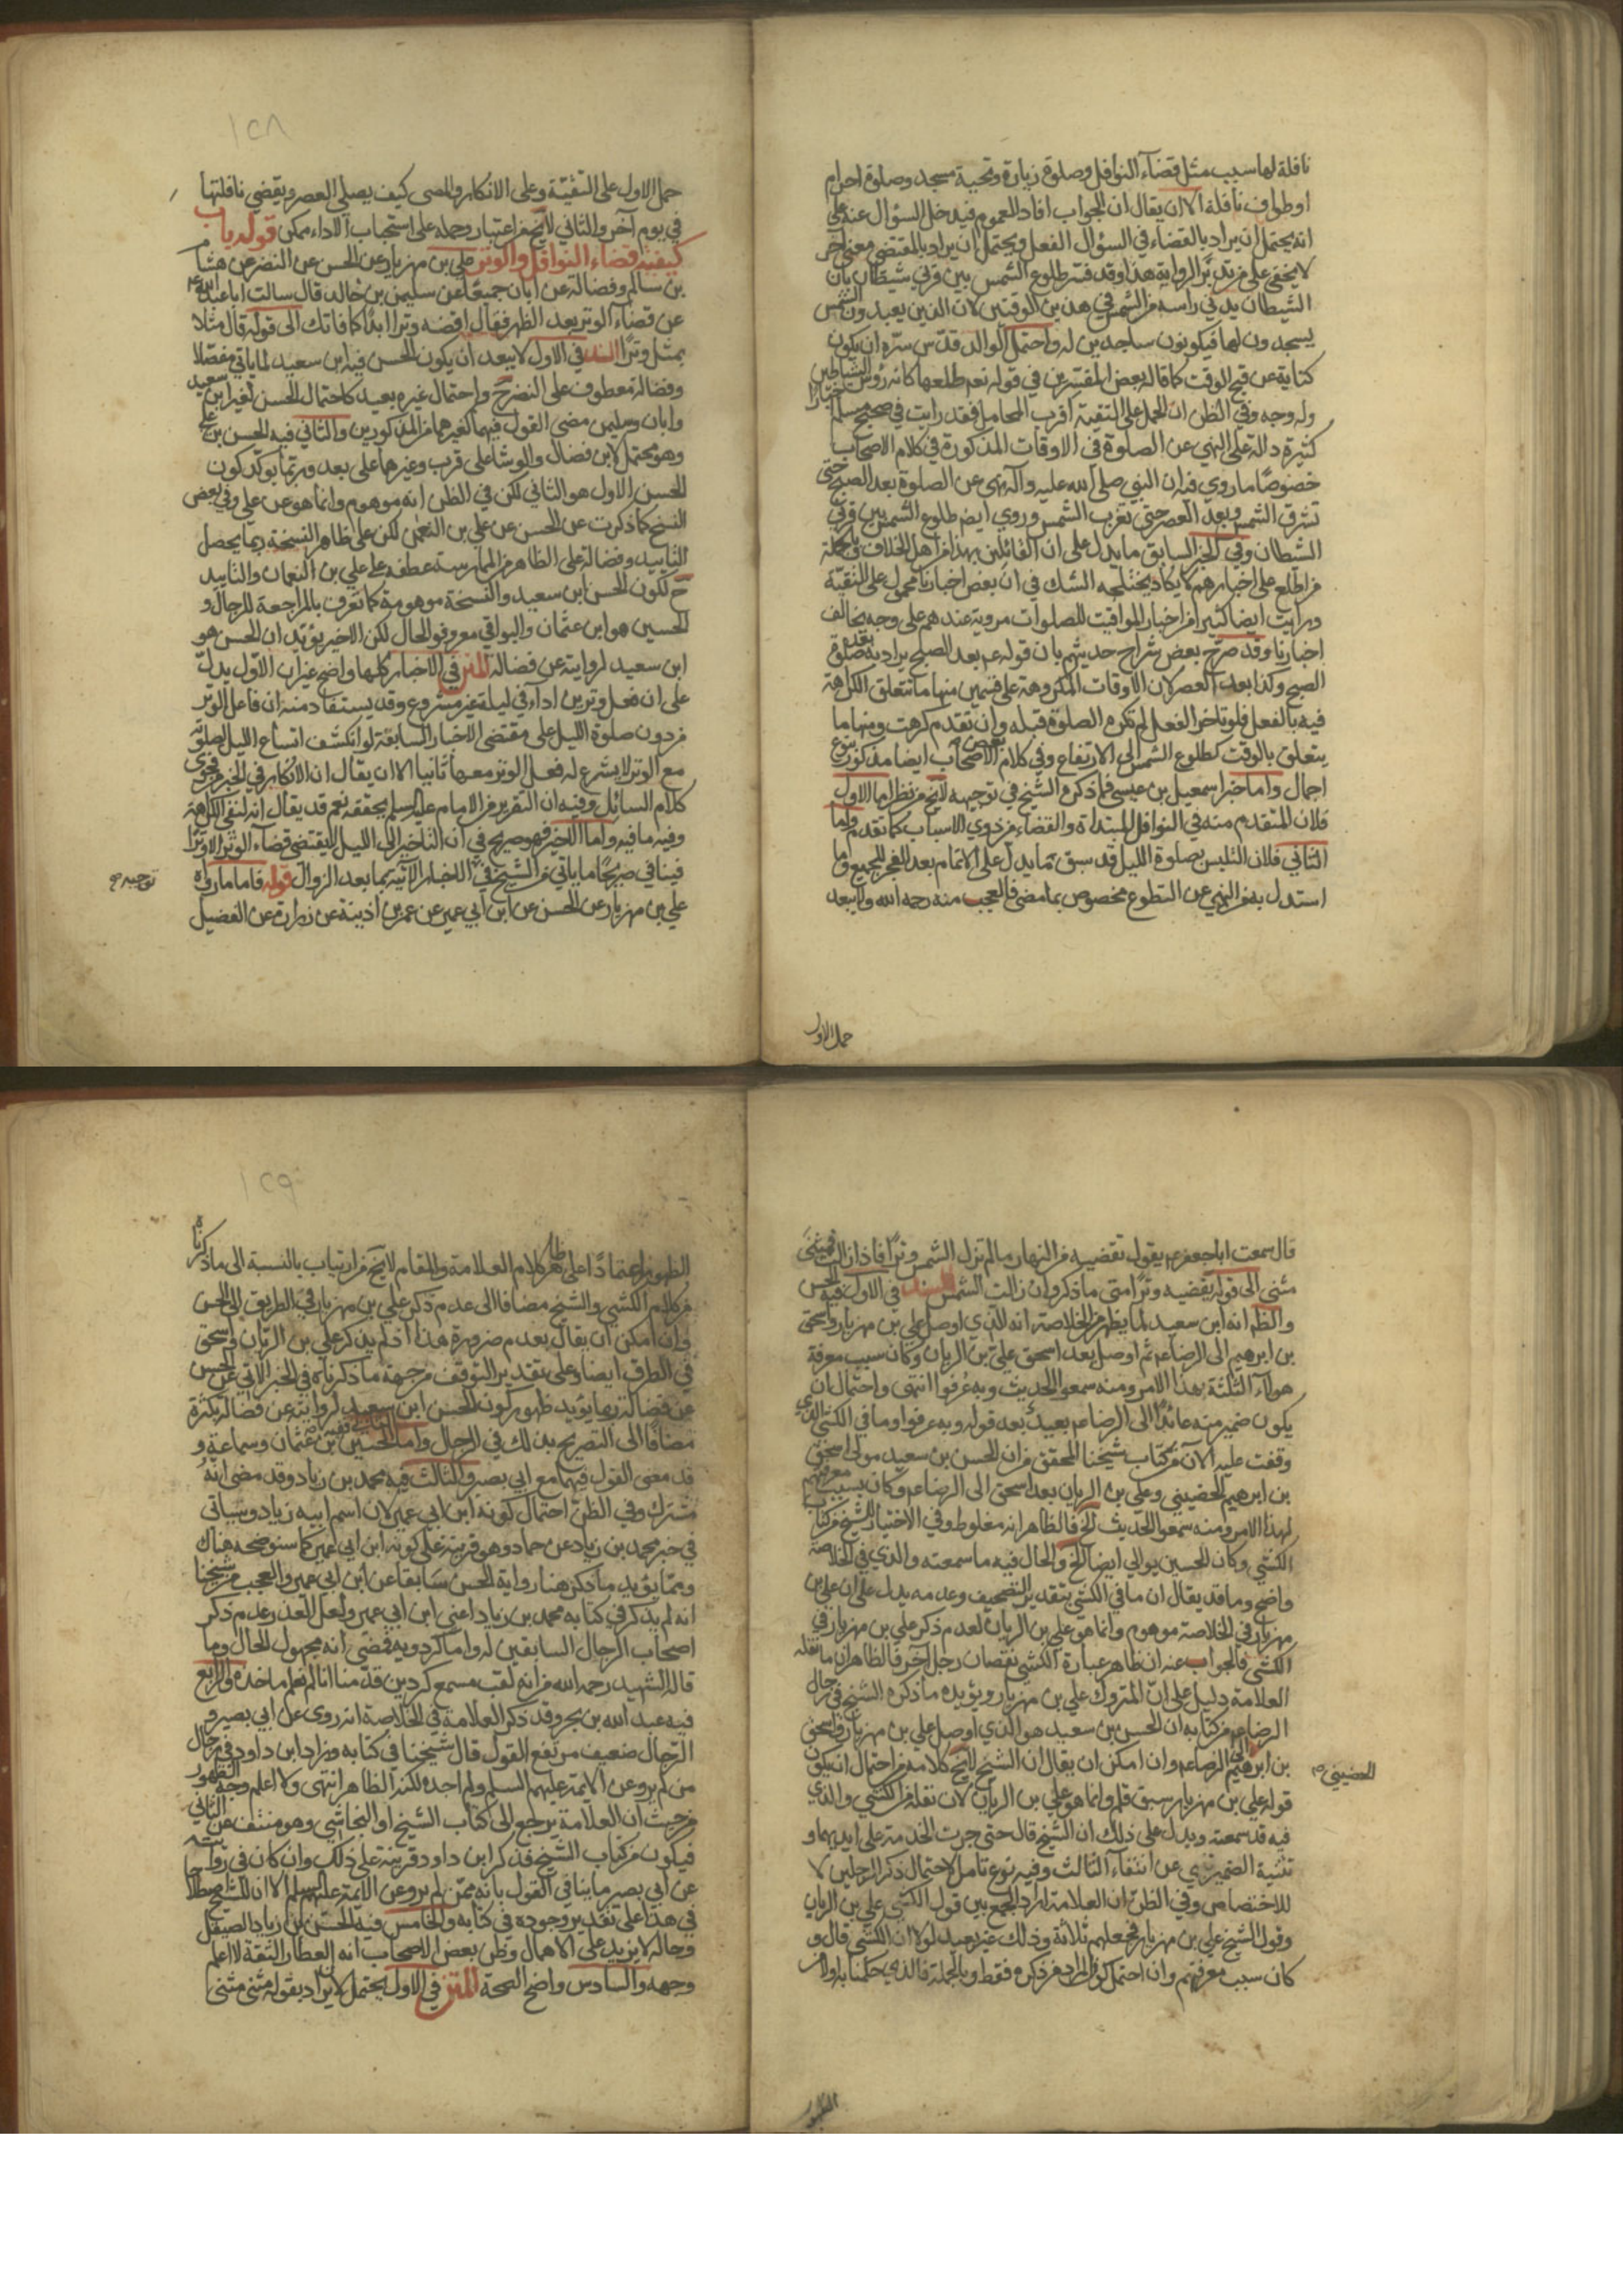 نافلة لها سبب مثل قضاء النوافل وصلوة زيارة وتحية مسجد وصلوة احرام
او طواف نافلة الا ان يقال ان الجواب افاد العموم فيدخل السؤال عنه على
انه يحتمل ان يراد بالقضاء في السؤال الفعل ويحتمل ان يراد بالمقتضي معنى اخر
لا يخفى على من تدبر الرواية هذا وقد فسر طلوع الشمس بين قرني شيطان بان
الشيطان يدني راسه من الشمس في هذين الوقتين لان الذين يعبدون الشمس
يسجدون لها فيكونون ساجدين له واحتمل الوالد قدس سره ان يكون
كناية عن قبح الوقت كما قاله بعض المفسرين في قوله نعم طلعها كانه رؤس الشياطين
وله وجه وفي الظن ان الحمل على التقية اقرب المحامل فقد رايت في صحيح مسلم اخبارا
كثيرة دالة على النهي عن الصلوة في الاوقات المذكورة في كلام الاصحاب
خصوصا ما روي فيه ان النبي صلى الله عليه وآله نهى عن الصلوة بعد الصبح حتى
تشرق الشمس وبعد العصر حتى تغرب الشمس وروي ايضا طلوع الشمس بين قرني
الشطان وفي الخبر السابق ما يدل على ان القائلين بهذا من اهل الخلاف وبالجملة
من اطلع على اخبارهم لا يكاد يختلجه الشك في ان بعض اخبارنا محمول على التقية
ورايت ايضا كثيرا من اخبار المواقيت للصلوات مروية عندهم على وجه يخالف
اخبارنا وقد صرح بعض شراح حديثهم بان قوله عم بعد الصبح يراد به بعد صلوة
الصبح وكذا بعد العصر لان الاوقات المكروهة على قسمين منها ما تتعلق الكراهة
فيه بالفعل فلو تاخر الفعل لم تكره الصلوة قبله وان تقدم كرهت ومنها ما
يتعلق بالوقت كطلوع الشمس الى الارتفاع وفي كلام بعض الاصحاب ايضا مذكور بنوع
اجمال واما خبر اسمعيل بن عيسى فما ذكره الشيخ في توجيهه لا يخ من نظر اما الاول
فلان المتقدم منه في النوافل المبتداة والقضاء من ذوي الاسباب كما تقدم واما
الثاني فلان التلبس بصلوة الليل قد سبق ما يدل على الاتمام بعد الفجر للجميع وما
استدل به من النهي عن التطوع مخصوص بما مضى فالعجب منه رحمه الله ولا يبعد
حمل الاول
١٢٨
حمل الاول على التقية وعلى الانكار والمعنى كيف يصلي العصر ويقضي نافلتها
في يوم آخر والثاني لا يخ من اعتبار وحمله على استحباب الاداء ممكن قوله باب
كيفية قضاء النوافل والوتر علي بن مهزيار عن الحسن عن النضر عن هشام
بن سالم وفضالة عن ابان جميعا عن سليمن بن خالد قال سالت ابا عبد الله عم
عن قضاء الوتر بعد الظهر فقال اقضه وترا ابدا كما فاتك الى قوله قال مثلا
بمثل وترا السند في الاول لا يبعد ان يكون الحسن فيه ابن سعيد لما ياتي مفصلا
وفضالة معطوف على النضر ح واحتمال غيره بعيد كاحتمال الحسن لغير ابن سعيد
وابان وسليمن مضى القول فيهما كغيرهما من المذكورين والثاني فيه الحسن بن علي
وهو محتمل لابن فضال والوشا على قرب وغيرهما على بعد وربما يؤكد كون
الحسن الاول هو الثاني لكن في الظن انه موهوم وانما هو عن علي وفي بعض
النسخ كما ذكرت عن الحسن عن علي بن النعمن لكن على ظاهر النسخة ربما يحصل
التاييد وفضالة على الظاهر من الممارسة عطفه على علي بن النعمان والتاييد
ح لكون الحسن ابن سعيد والنسخة موهومة كما تعرف بالمراجعة للرجال و
الحسين هو ابن عثمان والبواقي معروفو الحال لكن الاخير يؤيد ان الحسن هو
ابن سعيد لروايته عن فضالة المتن في الاخبار كلها واضح غير ان الاول يدل
على ان فعل وترين اداء في ليلة غير مشروع وقد يستفاد منه ان فاعل الوتر
من دون صلوة الليل على مقتضى الاخبار السابقة لو انكشف اتساع الليل لصلوة
مع الوتر لا يشرع له فعل الوتر معها ثانيا الا ان يقال ان الانكار في الخبر من فحوى
كلام السائل وفيه ان التقرير من الامام عليه السلم يحققه نعم قد يقال انه لنفي الكراهة
وفيه ما فيه واما الاخير فهو صريح في ان التاخير الى الليل لا يقتضي قضاء الوتر الا وترا
فينافي صريحا ما ياتي من الشيخ في الاخبار الآتية بما بعد الزوال قوله فاما ما رواه
توجيه صح
علي بن مهزيار عن الحسن عن ابن ابي عمير عن عمر بن اذينة عن زرارة عن الفضيل
قال سمعت ابا جعفر عم يقول تقضيه من النهار ما لم تزل الشمس وترا فاذا زالت فمثنى
مثنى الى قوله يقضيه وترا متى ما ذكر وان زالت الشمس السند في الاول فيه الحسن
والظ انه ابن سعيد لما يظهر من الخلاصة انه الذي اوصل علي بن مهزيار واسحق
بن ابرهيم الى الرضا عم ثم اوصل بعد اسحق علي بن الريان وكان سبب معرفة
هولاء الثلثة بهذا الامر ومنه سمعوا الحديث وبه عرفوا انتهى واحتمال ان
يكون ضمير منه عائدا الى الرضا عم بعيد بعد قوله وبه عرفوا وما في الكشي الذي
وقفت عليه الآن من كتاب شيخنا المحقق من ان الحسن بن سعيد مولى اسحق
بن ابرهيم الحضيني وعلي بن الريان بعد اسحق الى الرضا عم وكان سبب معرفتهم
لهذا الامر ومنه سمعوا الحديث الخ فالظاهر انه مغلوط وفي الاختيار للشيخ من كتاب
الكشي وكان الحسين يوالي ايضا الخ والحال فيه ما سمعته والذي في الخلاصة
واضح وما قد يقال ان ما في الكشي بتقدير التصحيف وعدمه يدل على ان علي بن
مهزيار في الخلاصة موهوم وانما هو علي بن الريان لعدم ذكر علي بن مهزيار في
الكشي فالجواب عنه ان ظاهر عبارة الكشي نقصان رجل آخر فالظاهر ان ما نقله
العلامة دليل على ان المتروك علي بن مهزيار ويؤيده ما ذكره الشيخ في رجال
الرضا عم من كتابه ان الحسن بن سعيد هو الذي اوصل علي بن مهزيار واسحق
بن ابرهيم الى الرضا عم وان امكن ان يقال ان الشيخ لا يخ كلامه من احتمال ان يكون
الحضيني صح
قوله علي بن مهزيار سبق قلم وانما هو علي بن الريان لان نقله من الكشي والذي
فيه قد سمعته ويدل على ذلك ان الشيخ قال حتى جرت الخدمة على ايديهما و
تثنية الضمير تنبي عن انتفاء الثالث وفيه نوع تامل لاحتمال ذكر الرجلين لا
للاختصاص وفي الظن ان العلامة اراد الجمع بين قول الكشي علي بن الريان
وقول الشيخ علي بن مهزيار فجعلهم ثلاثة وذلك غير بعيد لولا ان الكشي قال و
كان سبب معرفتهم وان احتمل كون المراد من ذكره فقط وبالجملة فالذي حكمنا به اولا من
الظهور
١٢٩
الظهور اعتمادا على ظاهر كلام العلامة والمقام لا يخ من ارتياب بالنسبة الى ما ذكرناه
من كلام الكشي والشيخ مضافا الى عدم ذكر علي بن مهزيار في الطريق الى الحسن
وان امكن ان يقال بعدم ضرورة هذا اذ لم يذكر علي بن الريان واسحق
في الطرق ايضا وعلى تقدير التوقف من جهة ما ذكرناه في الخبر الاتي عن الحسن
عن فضالة ربما يؤيد ظهور كون الحسن ابن سعيد لروايته عن فضالة بكثرة
مضافا الى التصريح بذلك في الرجال واما الحسين بن عثمان وسماعة و
قد مضى القول فيهما مع ابي بصير والثالث فيه محمد بن زياد وقد مضى انه
مشترك وفي الظن احتمال كونه ابن ابي عمير لان اسم ابيه زياد وسياتي
في خبر محمد بن زياد عن حماد وهو قرينة على كونه ابن ابي عمير كما سنوضحه هناك
ومما يؤيد ما ذكر هنا رواية الحسن سابقا عن ابن ابي عمير والعجب من شيخنا
انه لم يذكر في كتابه محمد بن زياد اعني ابن ابي عمير ولعل العذر عدم ذكر
اصحاب الرجال السابقين له واما كردويه فمضى انه مجهول الحال وما
قاله الشهيد رحمه الله من انه لقب مسمع كردين قدمنا انا لم نعلم ماخذه والرابع
فيه عبد الله بن بحر وقد ذكر العلامة في الخلاصة انه روى عن ابي بصير و
الرجال ضعيف مرتفع القول قال شيخنا في كتابه وزاد ابن داود في رجال
من لم يرو عن الايمة عليهم السلم ولم اجده لكنه الظاهر انتهى ولا اعلم وجه الظهور
من حيث ان العلامة يرجع الى كتاب الشيخ او النجاشي وهو منتف عن الثاني
فيكون من كتاب الشيخ فذكر ابن داود قرينة على ذلك وان كان في روايته
عن ابي بصير ما ينافي القول بانه ممن لم يرو عن الايمة عليهم السلم الا ان للشيخ اصطلاحا
في هذا على تقدير وجوده في كتابه والخامس فيه الحسن بن زياد الصيقل
وحاله لا يزيد على الاهمال وظن بعض الاصحاب انه العطار الثقة لا اعلم
وجهه والسادس واضح الصحة المتن في الاول يحتمل ان يراد بقوله مثنى مثنى